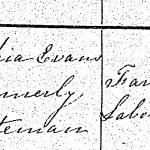 hia Evans
merly
teman
Far
Labo